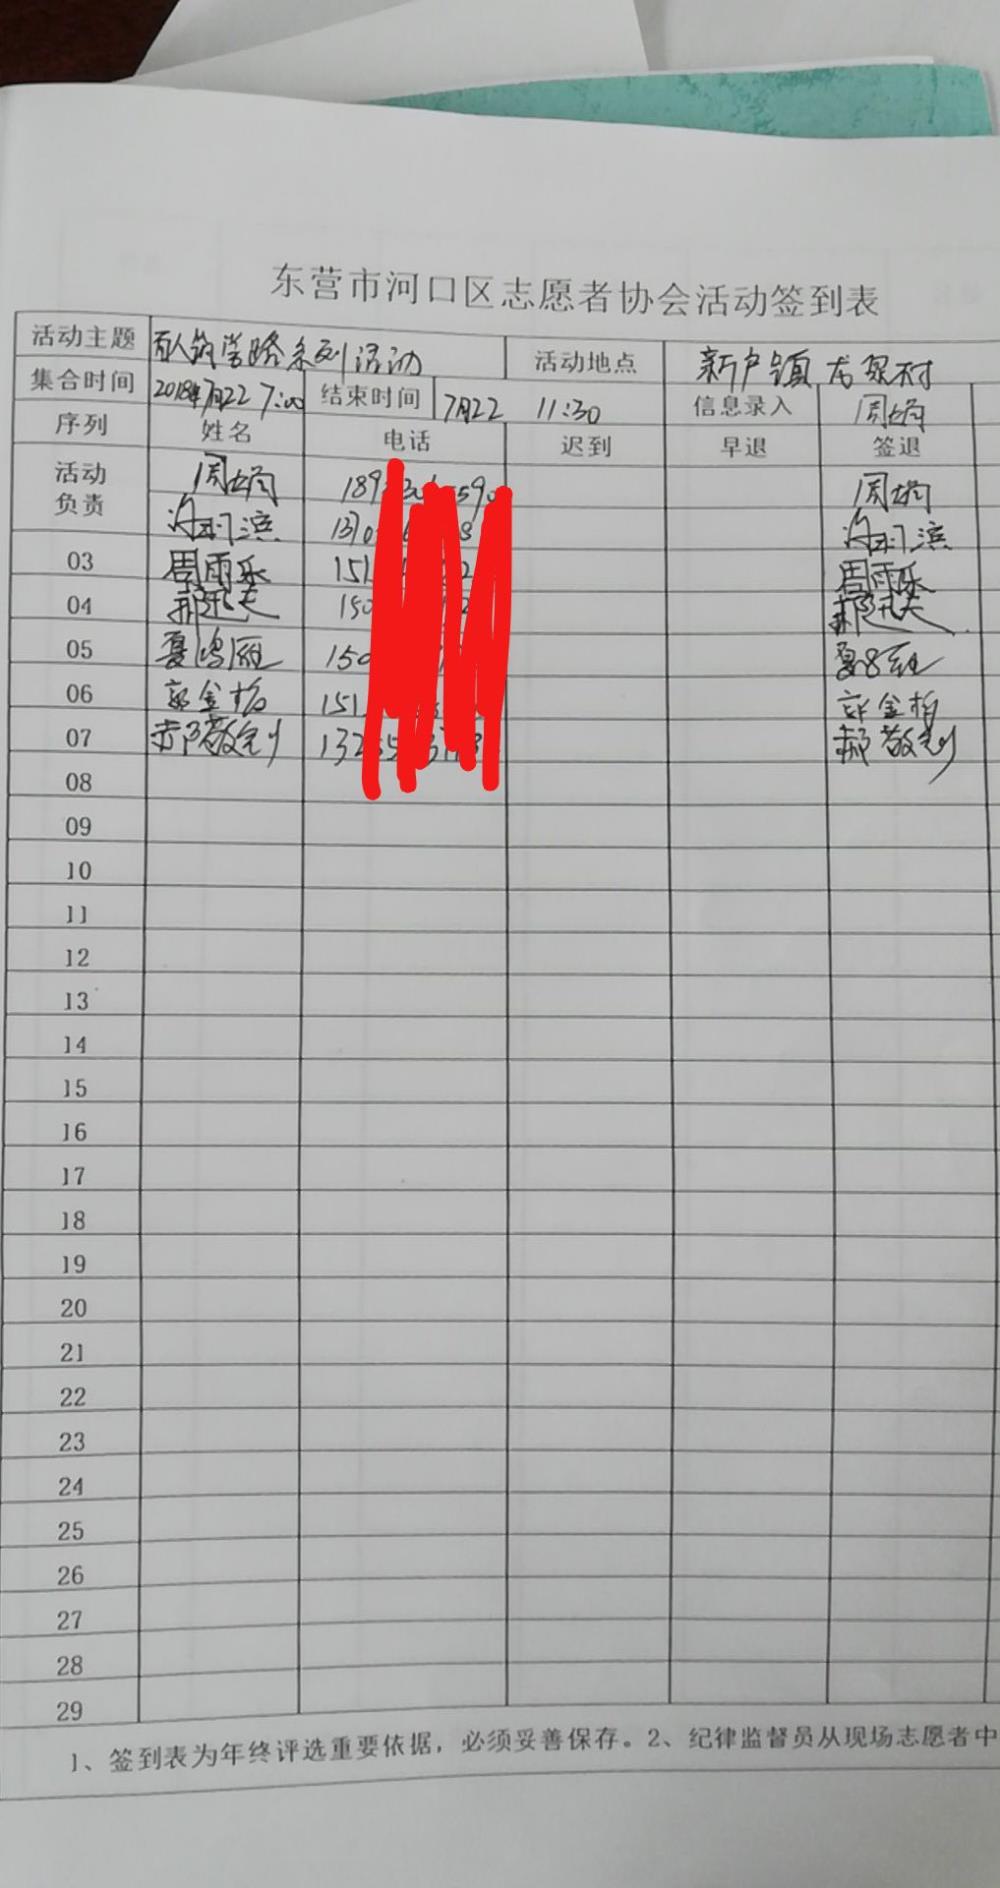 东营市河口区志愿者协会活动签到表
活动主题 百人筑学路系列活动 活动地点 新户镇
集合时间 2018年7月22 7:00 结束时间 7月22 11:30 信息录入 周娟
序列 姓名 电话 迟到 早退 签退
活动负责 周娟 周娟
滨 滨
03 周雨乐 151 周雨乐
04 郝 150 郝
05 夏鸿雁 150 夏
06 郭金柏 151 郭金柏
07 郝敬 132 郝敬
08
09
10
11
12
13
14
15
16
17
18
19
20
21
22
23
24
25
26
27
28
29
1、签到表为年终评选重要依据，必须妥善保存。2、纪律监督员从现场志愿者中